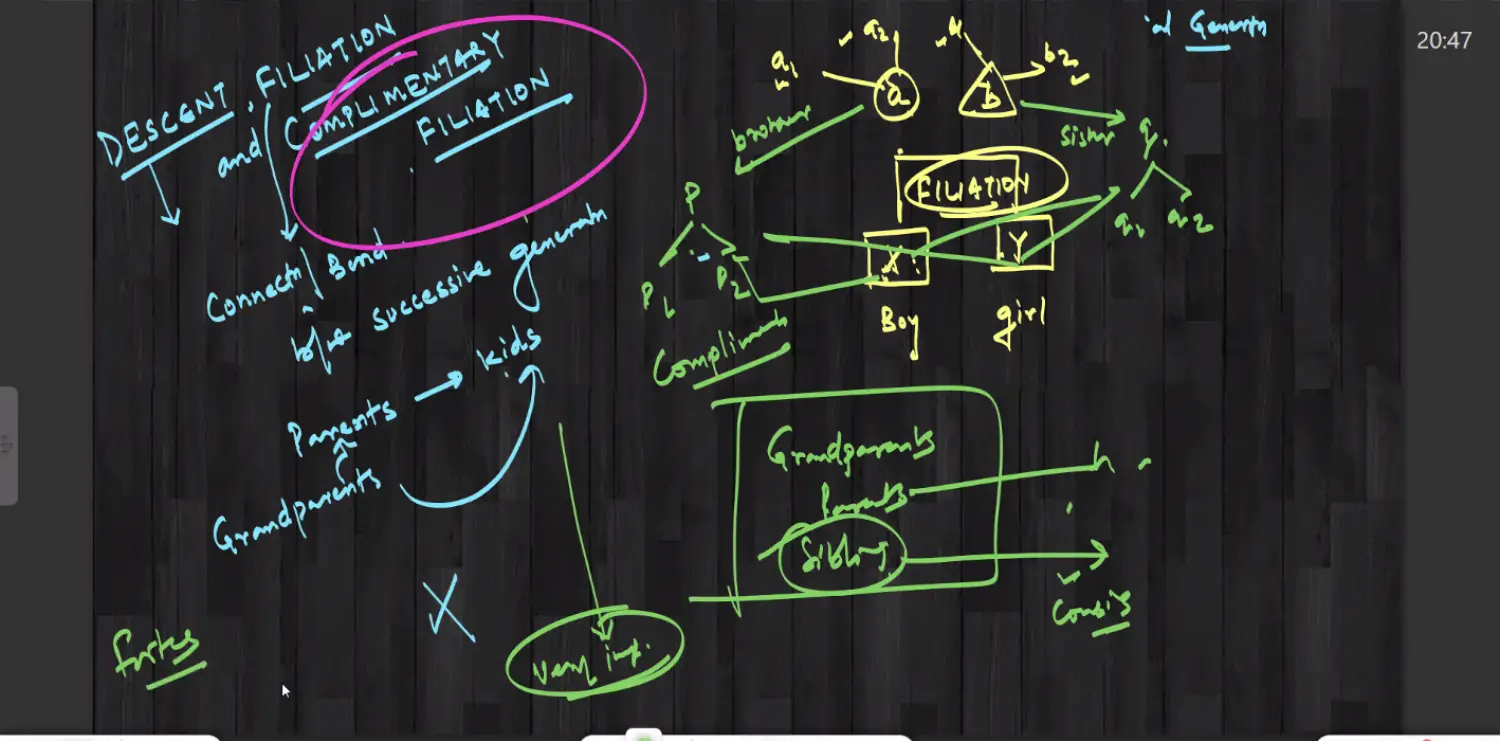 DESCENT, FILIATION
and COMPLIMENTARY
FILIATION
Connectn / Bond
b/w successive generatn
Parents → kids
Grandparents
X
fortes
very imp.
a1
a2
a
b
b2
brother
sister
q.
q1 q2
P
P1 P2
FILIATION
X
Y
Boy
girl
Complimentn
Grandparents
Parents
Sibling
20:47